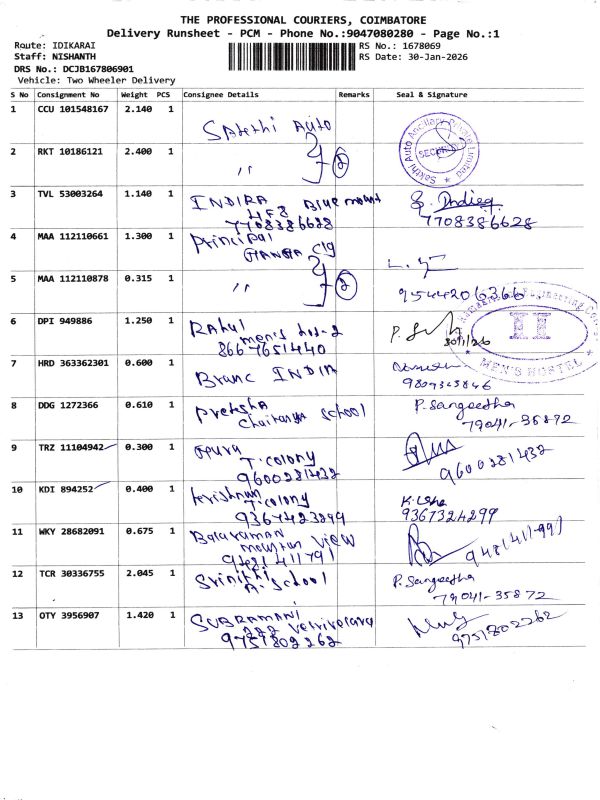 THE PROFESSIONAL COURIERS, COIMBATORE
Delivery Runsheet - PCM - Phone No.:9047080280 - Page No.:1
Route: IDIKARAI
RS No.: 1678069
Staff: NISHANTH
RS Date: 30-Jan-2026
DRS No.: DCJB167806901
Vehicle: Two Wheeler Delivery
S No Consignment No Weight PCS Consignee Details Remarks Seal & Signature
1 CCU 101548167 2.140 1
Sakthi Auto
Sakthi Auto Ancillary Private Limited
SECURITY
2 RKT 10186121 2.400 1
" 2
3 TVL 53003264 1.140 1
INDIRA Blue mount
HF8
7708386628
7708386628
4 MAA 112110661 1.300 1
Principal
GANGA clg
5 MAA 112110878 0.315 1
" 2
9544206366
6 DPI 949886 1.250 1
RAhul
men's hos-2
8667651440
30/1/26
II
MEN'S HOSTEL
7 HRD 363362301 0.600 1
Branc INDIA
8 DDG 1272366 0.610 1
Preksha
Chaitanya school
P. Sangeetha
79041-35872
9 TRZ 11104942 0.300 1
T.colony
9600281432
9600281432
10 KDI 894252 0.400 1
T.colony
K. Usha
9367324299
11 WKY 28682091 0.675 1
Balaraman
mountun view
9481411791
12 TCR 30336755 2.045 1
Srinithi
A. School
P. Sangeetha
79041-35872
13 OTY 3956907 1.420 1
SUBRAMANI
222 Vetrivelava
9751802262
9751802262